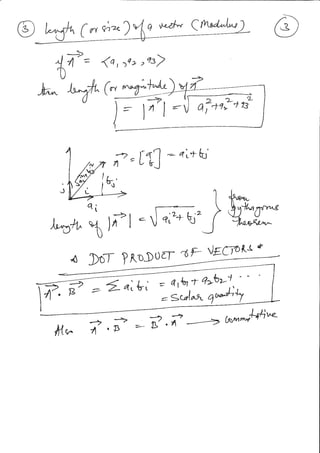 ③ length (or size) of a vector (Modulus) ③
if A⃗ = <a₁, a₂, a₃>
then length (or magnitude) of A⃗
= |A⃗| = √a₁² + a₂² + a₃²
A⃗ = [a b] = ai + bj
j i bj
ai
length of |A⃗| = √ai² + bj² } from pythagorus theorem
DOT PRODUCT OF VECTORS
A⃗ . B⃗ = Σ aibi = a₁b₁ + a₂b₂ + ...
= Scalar quantity
Also A⃗ . B⃗ = B⃗ . A⃗ → commutative